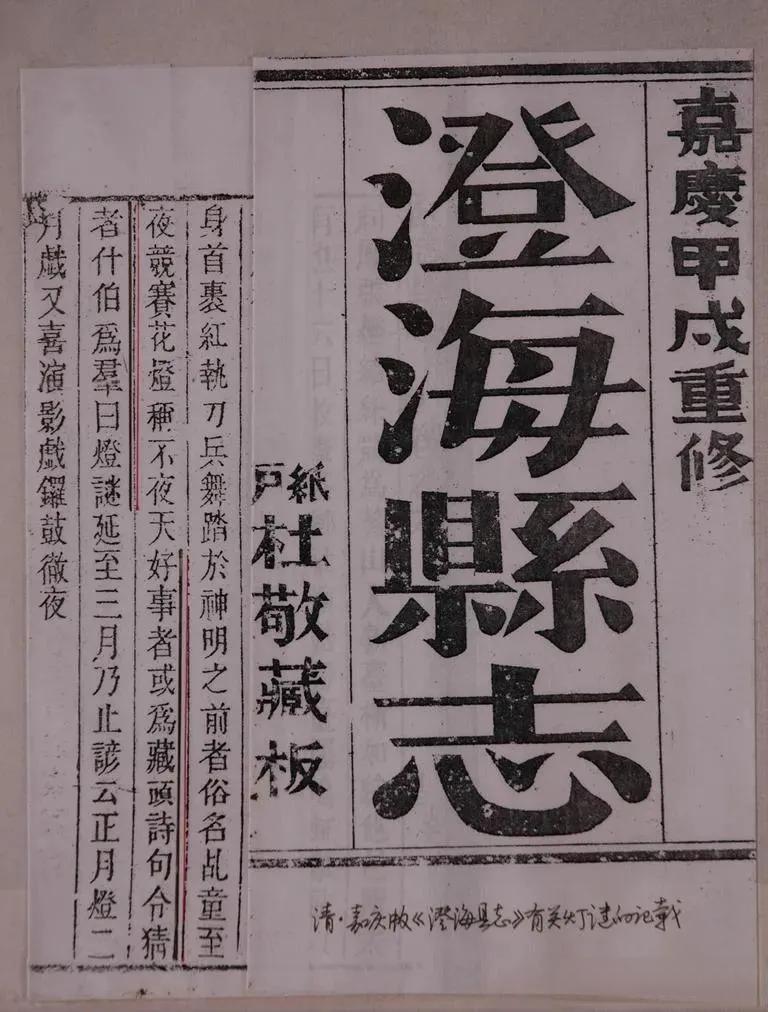 嘉慶甲戌重修
澄海縣志
紙戶杜敬藏板
身首裹紅執刀兵舞踏於神明之前者俗名乩童至
夜競賽花燈稱不夜天好事者或爲藏頭詩句令猜
者什伯爲羣曰燈謎延至三月乃止諺云正月燈二
月戲又喜演影戲鑼鼓徹夜
清·嘉庆版《澄海县志》有关灯谜的记载